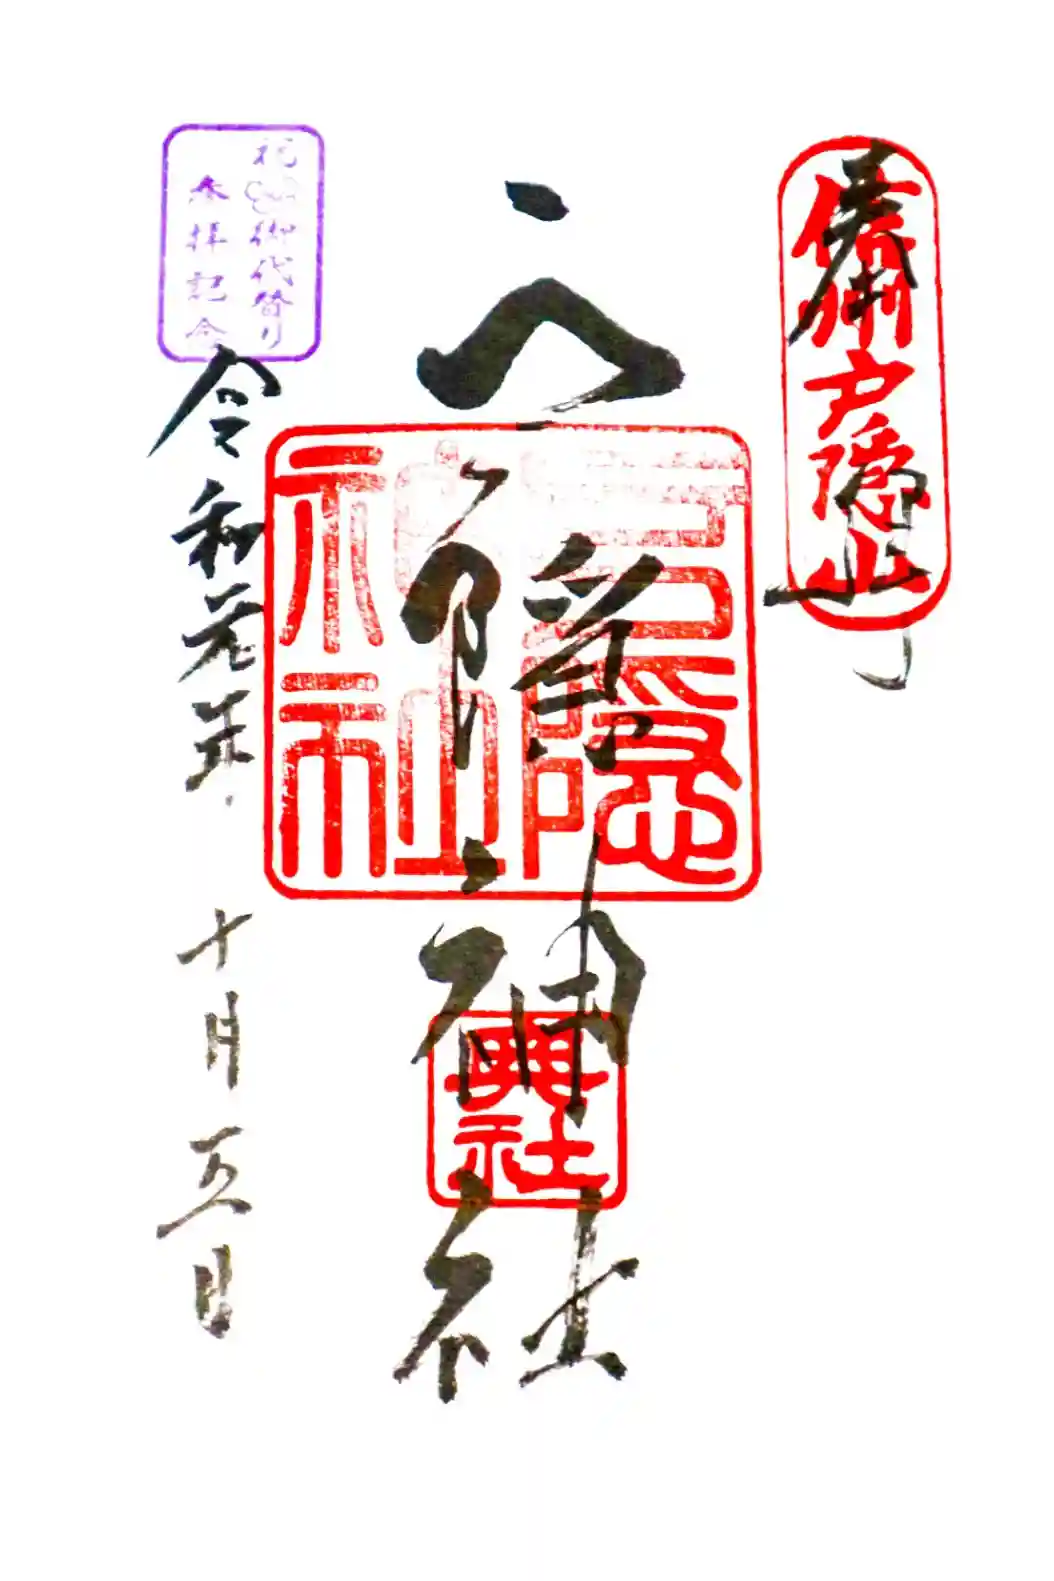 奉拝
信州戸隠山
戸隠神社
戸隠
神社
奥社
祝御代替り
参拝記念
令和元年十月五日